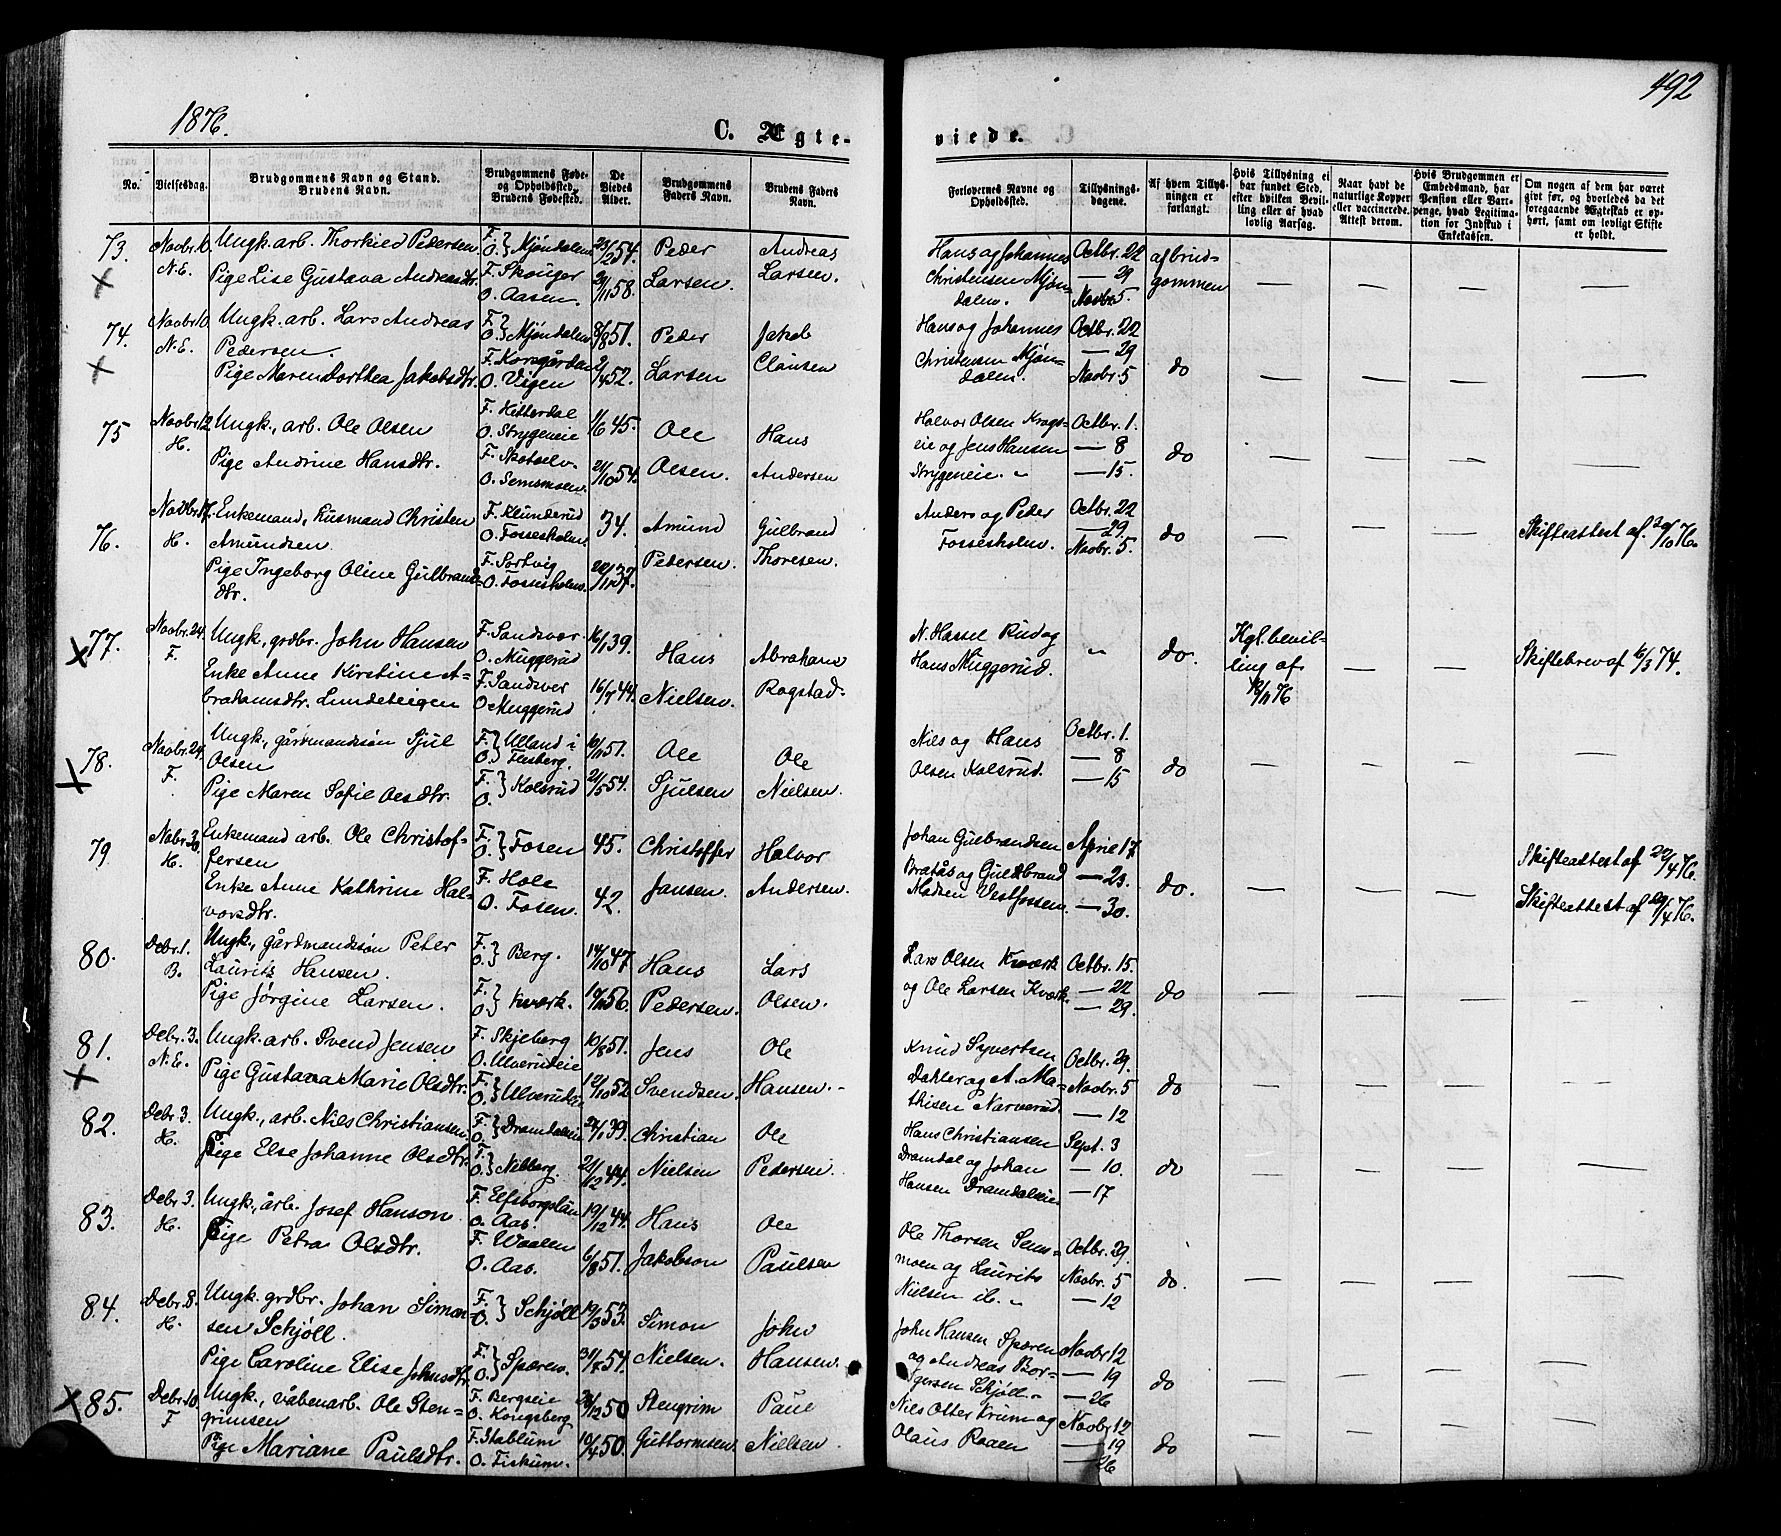 492
1876.
C. Ægte-
viede.
No.
Vielsesdag.
Brudgommens Navn og Stand.
Brudens Navn.
Brudgommens Føde-
og Opholdssted.
Brudens Fødested.
De
Viedes
Alder.
Brudgommens
Faders Navn.
Brudens Faders
Navn.
Forlovernes Navne og
Opholdssted.
Tillysnings-
dagene.
Af hvem Tillys-
ningen er
forlangt.
Hvis Tillysning ei
har fundet Sted,
efter hvilken Bevil-
ling eller af hvad
lovlig Aarsag.
Naar havt de
naturlige Kopper
eller vaccinerede.
Attest derom.
Hvis Brudgommen er
Embedsmand, har
Pension eller Vart-
penge, hvad Legitima-
tion for Indskud i
Enkekassen.
Om nogen af dem har været
gift før, og hvorledes da det
foregaaende Ægteskab er op-
hørt, samt om lovligt Skifte
er holdt.
73. Novbr. 10 Ungk. arb. Thorkild Pedersen F. } Mjøndalen 23/2 54. Peder Andreas Hans og Johannes Octbr. 22 af brud-
N.E. O. Christensen Mjøn- — 29 gommen — — — —
X Pige Lise Gustava Andreasdtr. F. Skouger 21/11 58. Larsen. Larsen. dalen. Novbr. 5.
O. Aasen.
74. Novbr. 10 Ungk. arb. Lars Andreas F. } Mjøndalen 8/8 51. Peder Jakob Hans og Johannes Octbr. 22
N.E. Pedersen. O. Christensen Mjøn- — 29 do — — — —
X Pige Maren Dorthea Jakobsdtr. F. Korsgården 2/4 52. Larsen Clausen dalen. Novbr. 5
O. Vigen
75 Novbr. 12 Ungk., arb. Ole Olsen F. Hitterdal 1/6 45. Ole Hans Halvor Olsen Krags- Octbr. 1.
H. O. Strygeneie eie og Jens Hansen — 8 do — — — —
Pige Andrine Hansdtr. F. Skotselv 21/10 54. Olsen. Andersen Strygeneie. „ — 15.
O. Semsmoen.
76. Novbr. 17. Enkemand, Husmand Christen F. Klunderud 34. Amund Gulbrand Anders og Peder Octbr. 22
H. Amundsen O. Fossesholm. Fossesholm. — 29. do — — Skifteattest af 30/10 76.
Pige Ingeborg Oline Gulbrands- F. Sortvig 20/11 37. Pedersen. Thoresen. Novbr. 5.
dtr. O. Fossesholm.
X 77. Novbr. 24. Ungk., grdbr. John Hansen F. Sandsvær 16/1 39. Hans Abraham N. Hassel Rud og „ do. Kgl. bevil- — — Skiftebrev af 6/3 74.
F. O. Muggerud Hans Muggerud. ling af
Enke Anne Kirstine A- F. Sandsver 16/7 44. Nielsen. Rogstad. 18/11 76
brahamsdtr. Lundeteigen O. Muggerud
78. Novbr. 24. Ungk., gårdmandssøn Sjul F. } Ulland i 10/11 51. Ole Ole Nils og Hans Octbr. 1.
X F. Olsen O. Flesberg. Olsen Kolsrud. — 8 do — — — —
Pige Maren Sofie Olsdtr. F. } Kolsrud 21/5 54. Sjulsen Nielsen. — 15
O.
79. Nobr. 30. Enkemand arb. Ole Christof- F. } Fosen 45. Christoffer Halvor Johan Gulbrandsen April 17
H. fersen O. Bratås og Guldbrand — 23. do. — — — Skifteattest af 22/4 76.
Enke Anne Kathrine Hal- F. Hole 42. Jansen. Andersen. Madsen Vestfossen. — 30. Skifteattest af 29/4 76.
vorsdtr. O. Fosen.
80. Debr. 1. Ungk., gårdmandssøn Peter F. } Berg. 14/10 47. Hans Lars Lars Olsen Kværk Octbr. 15.
B. Laurits Hansen. O. og Ole Larsen Kværk. — 22 do — — — —
Pige Jørgine Larsen. F. } Kværk. 10/11 56. Pedersen. Olsen. — 29.
O.
81. Debr. 3. Ungk. arb. Svend Jensen F. Skjeberg 10/8 51. Jens Ole Knud Syvertsen Octbr. 29.
N.E. O. Ulverudeie Dahler og A. Ma- Novbr. 5 do — — — —
X Pige Gustava Marie Olsdtr. F. } Ulverudeie 12/10 52. Svendsen. Hansen. thisen Narverud. — 12
O.
82. Debr. 3. Ungk., arb. Nils Christiansen. F. } Dramdaleie 24/1 39. Christian Ole Hans Christiansen Sept. 3
H. O. Dramdal og Johan — 10. do — — — —
Pige Else Johanne Olsdtr. F. } Nebberg. 21/12 44. Nielsen Pedersen. Hansen Dramdaleie — 17
O.
83. Debr. 3. Ungk., arb. Josef Hanson F. Elfsborgslän 19/12 44. Hans Ole Ole Thorsen Sems- Octbr. 29.
H. O. Aas. moen og Laurits Novbr. 5 do. — — — —
Pige Petra Olsdtr. F. Waalen 6/8 51. Jakobson Paulsen Nielsen ib. „ — 12
O. Aas.
84. Debr. 8. Ungk. grdbr. Johan Simon- F. } Schjøll 19/3 53. Simon John John Hansen Spæren Novbr. 12
H. sen Schjøll. O. og Andreas Bor- — 19 do — — — —
Pige Caroline Elise Johnsdtr. F. } Spæren. 31/7 54. Nielsen. Hansen. gersen Schjøll. „ — 26
O.
X 85. Debr. 10. Ungk., våbenarb. Ole Sten- F. Bergseie 28/12 50 Stengrim Paul Nils Otter Krum og Novbr. 12
F grimsen O. Kongsberg Olaus Raaen — 19 do — — — —
Pige Mariane Paulsdtr. F. Stablum 10/4 50. Guttormsen. Nielsen. — 26
O. Fiskum.